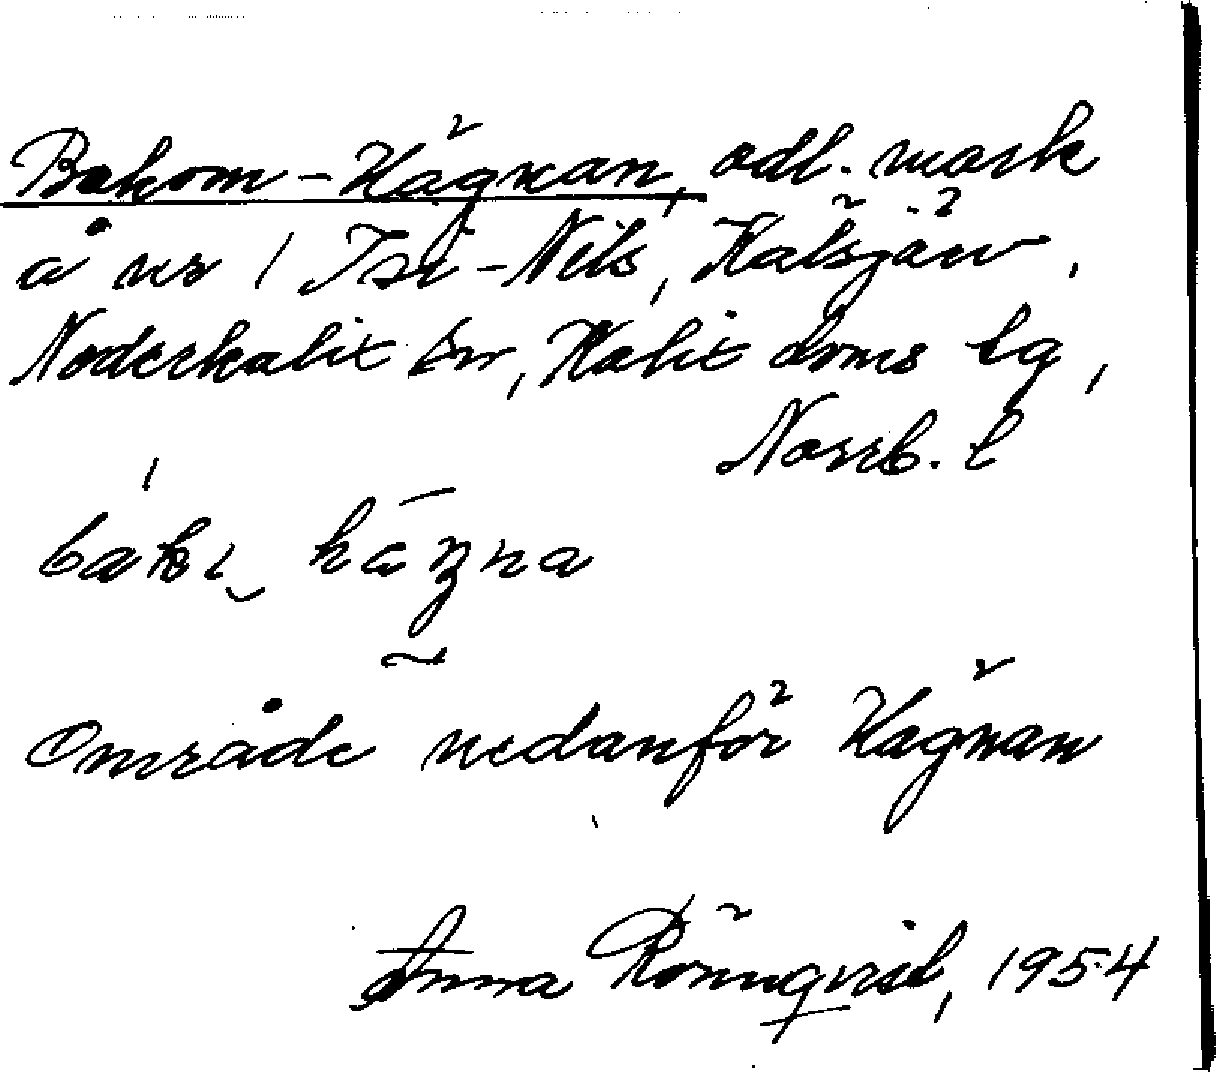 Bakom-Hägnan, odl. mark
å nr 1 Isi-Nils, Kälsjärv,
Nederkalix sn, Kalix doms lg,
Norrb. l
område nedanför Hägnan
Anna Rönnqvist, 1954